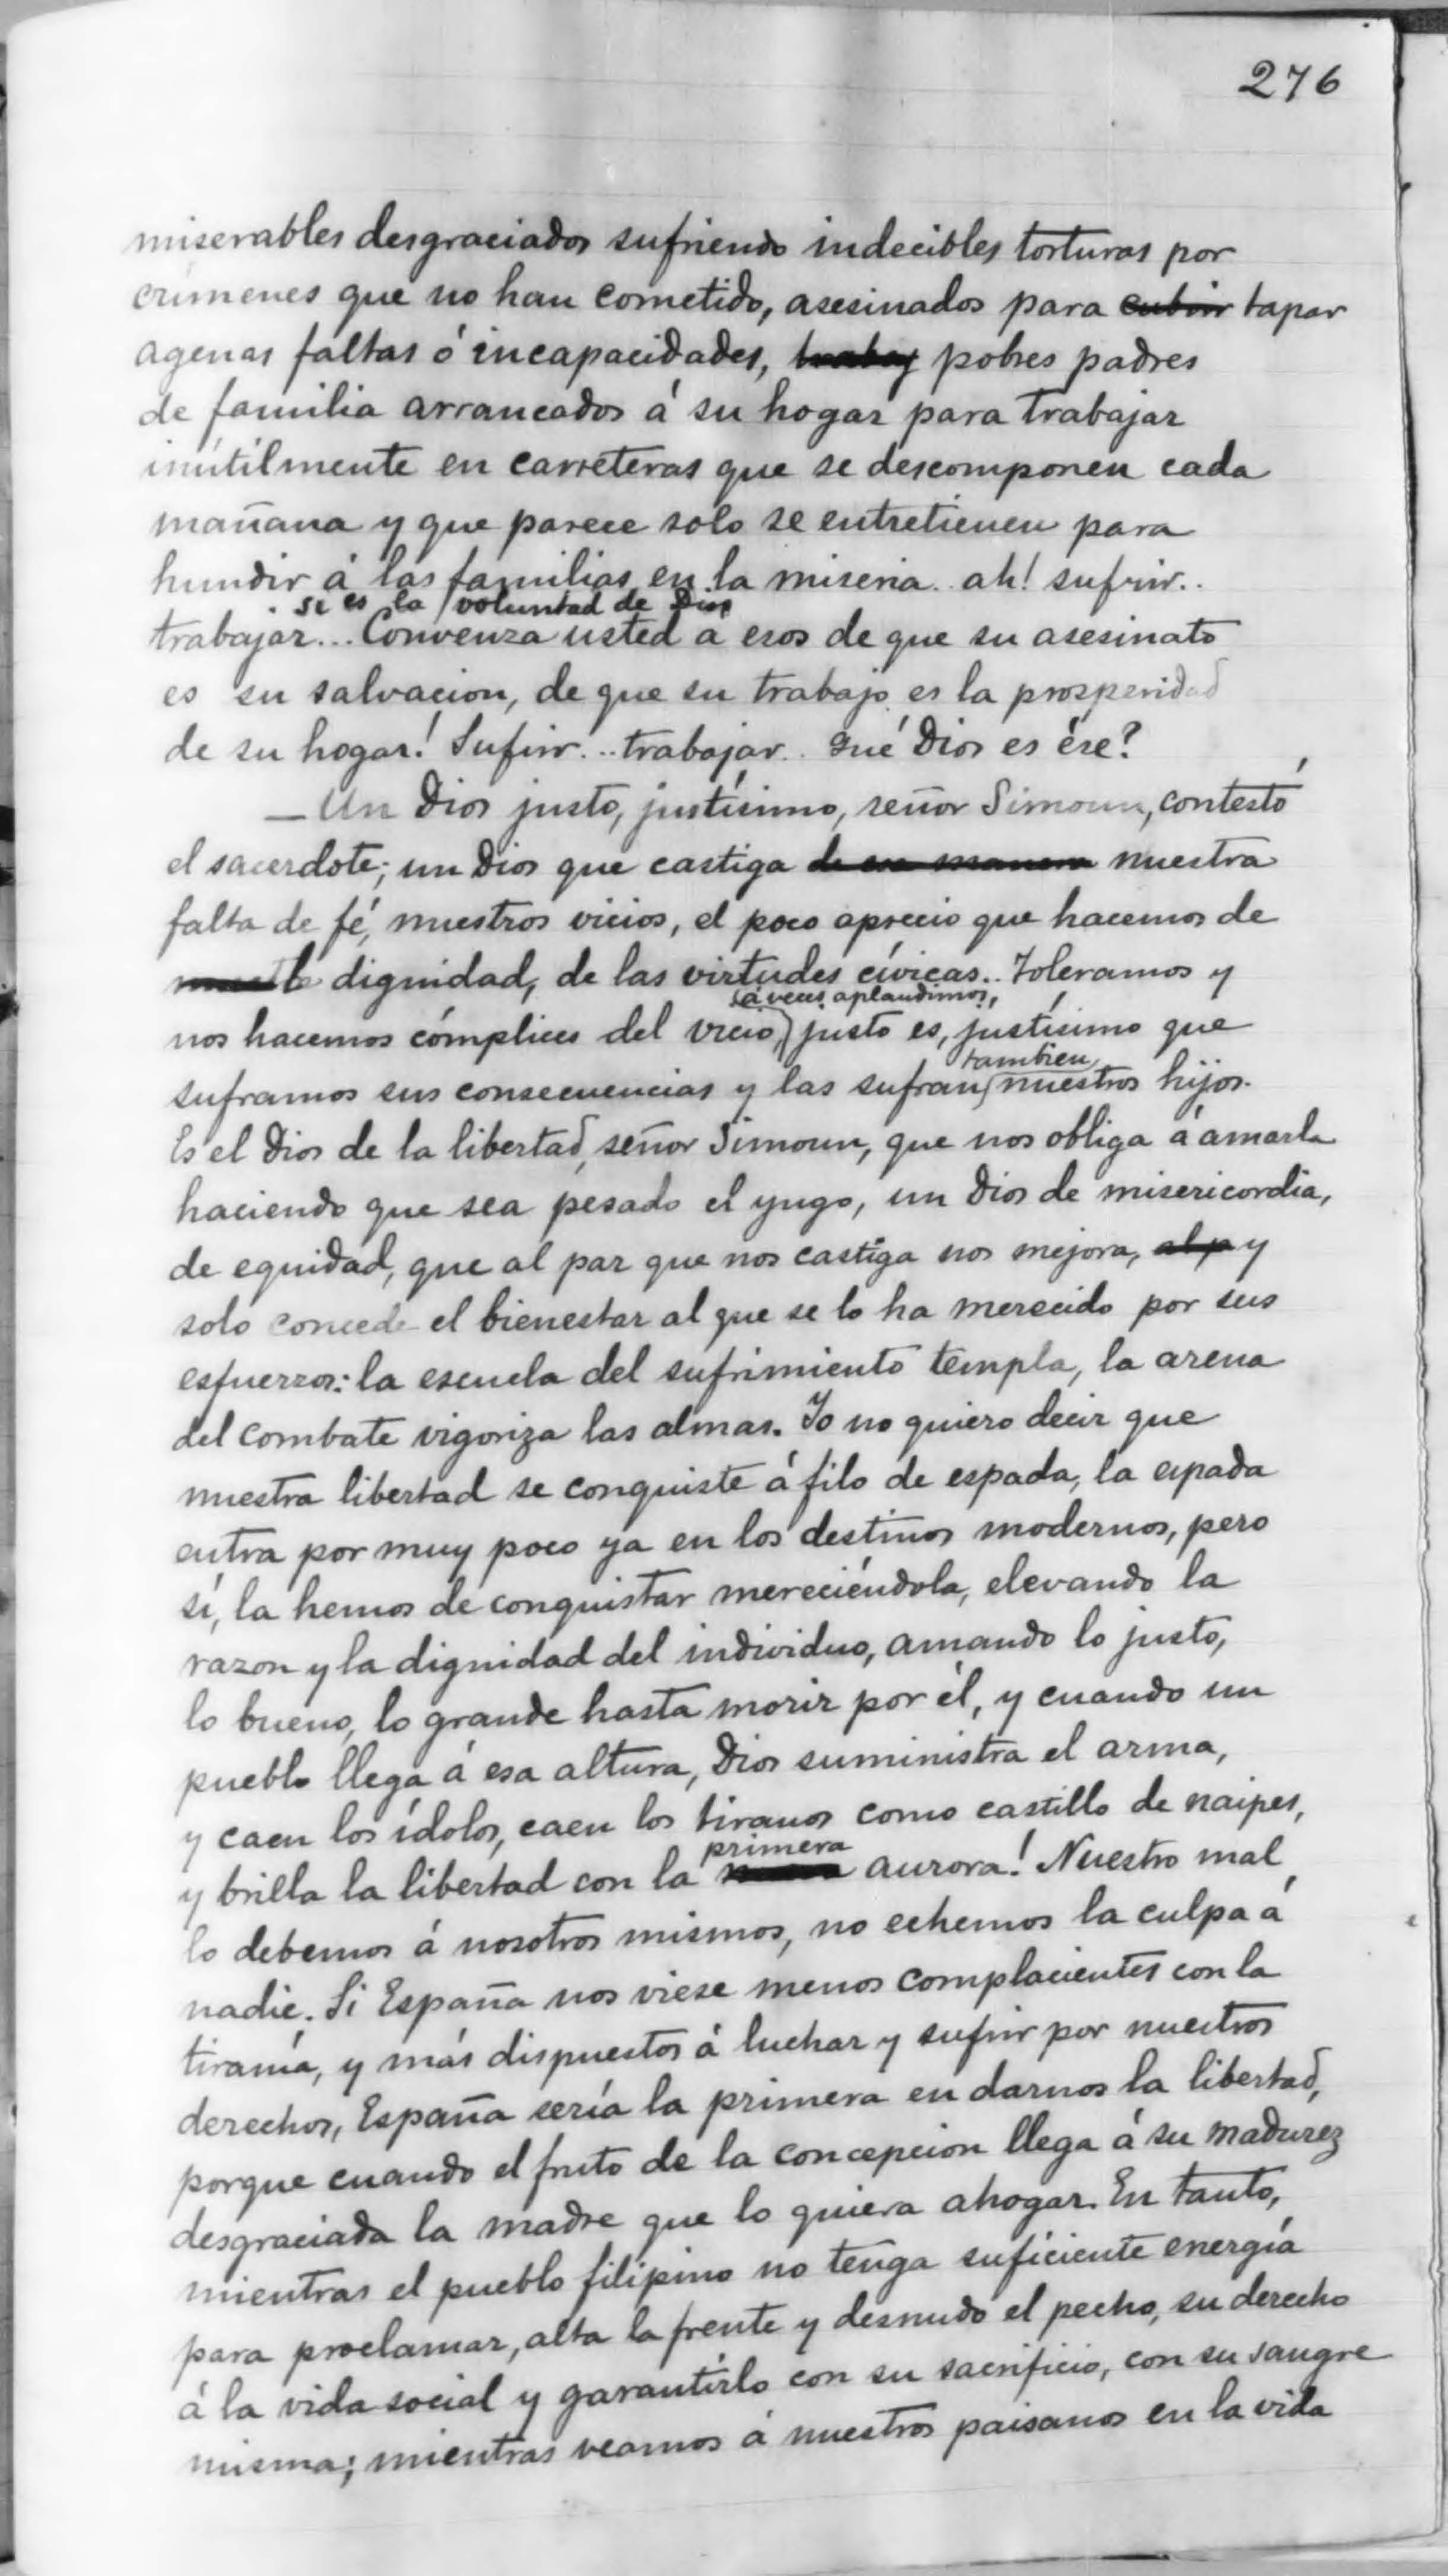 276
miserables desgraciados sufriendo indecibles torturas por
crímenes que no han cometido, asesinados para cubrir tapar
agenas faltas ó incapacidades, trabaj pobres padres
de familia arrancados á su hogar para trabajar
inútilmente en carreteras que se descomponen cada
mañana y que parece solo se entretienen para
hundir á las familias en la miseria.. ah! sufrir..
si es la voluntad de Dios
trabajar... Convenza usted á esos de que su asesinato
es su salvacion, de que su trabajo es la prosperidad
de su hogar! Sufrir... trabajar.. Qué Dios es ése?
— Un Dios justo, justísimo, señor Simoun, contestó
el sacerdote; un Dios que castiga de esa manera nuestra
falta de fé, nuestros vicios, el poco aprecio que hacemos de
la dignidad, de las virtudes cívicas.. Toleramos y
á veces aplaudimos,
nos hacemos cómplices del vicio, justo es, justísimo que
tambien
suframos sus consecuencias y las sufran nuestros hijos.
Es el Dios de la libertad, señor Simoun, que nos obliga á amarla
haciendo que sea pesado el yugo, un Dios de misericordia,
de equidad, que al par que nos castiga nos mejora, al p y
solo concede el bienestar al que se lo ha merecido por sus
esfuerzos: la escuela del sufrimiento templa, la arena
del combate vigoriza las almas. Yo no quiero decir que
nuestra libertad se conquiste á filo de espada, la espada
entra por muy poco ya en los destinos modernos, pero
sí, la hemos de conquistar mereciéndola, elevando la
razon y la dignidad del individuo, amando lo justo,
lo bueno, lo grande hasta morir por él, y cuando un
pueblo llega á esa altura, Dios suministra el arma,
y caen los ídolos, caen los tiranos como castillo de naipes,
primera
y brilla la libertad con la aurora! Nuestro mal
lo debemos á nosotros mismos, no echemos la culpa á
nadie. Si España nos viese menos complacientes con la
tiranía, y más dispuestos á luchar y sufrir por nuestros
derechos, España sería la primera en darnos la libertad,
porque cuando el fruto de la concepcion llega á su madurez
desgraciada la madre que lo quiera ahogar. En tanto,
mientras el pueblo filipino no tenga suficiente energía
para proclamar, alta la frente y desnudo el pecho, su derecho
á la vida social y garantirlo con su sacrificio, con su sangre
misma; mientras veamos á nuestros paisanos en la vida